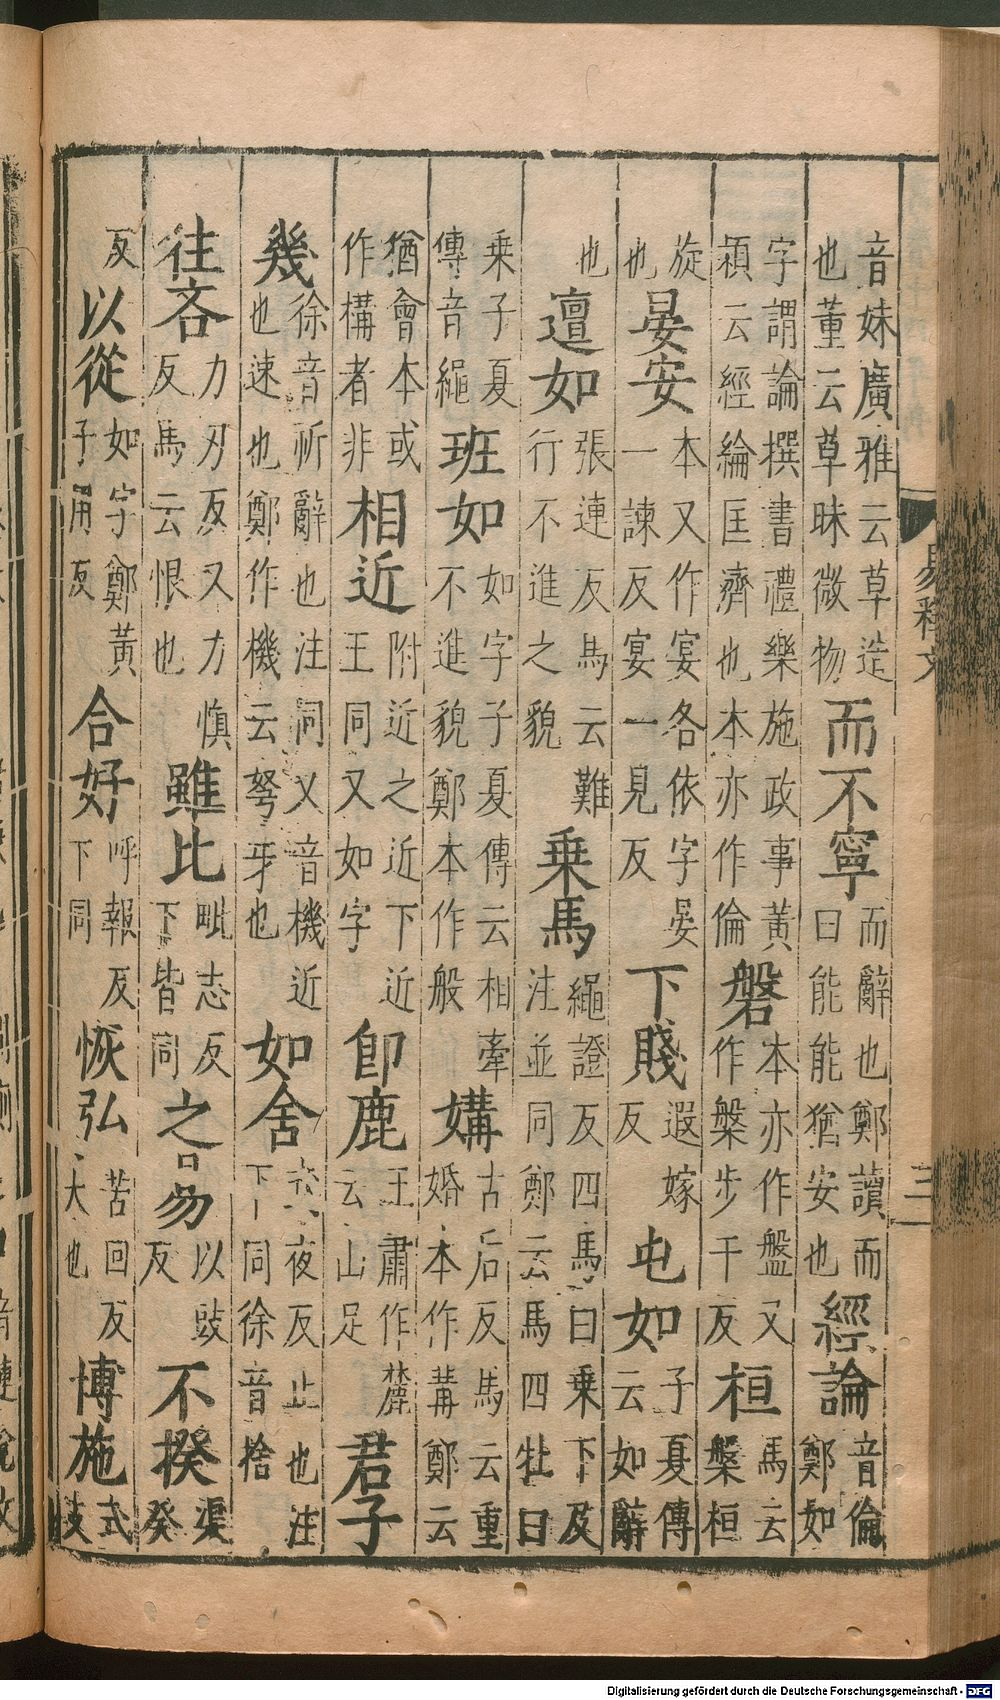 音妹廣雅云草造也董云草昧微物而不寧而辭也鄭讀而曰能能猶安也經論音倫鄭如
字謂論撰書禮樂施政事黃穎云經綸匡濟也本亦作倫磐本亦作盤又作槃步干反桓馬云槃桓
旋也晏安本又作宴各依字晏一諫反宴一見反下賤遐嫁反屯如子夏傳云如辭
也邅如張連反馬云難行不進之貌乗馬繩證反四馬曰乗下及注並同鄭云馬四牡曰
乗子夏傳音繩班如如字子夏傳云相牽不進貌鄭本作般媾古后反馬云重婚本作冓鄭云
猶會本或作構者非相近附近之近下近王同又如字即鹿王肅作麓云山足君子
幾徐音祈辭也注同又音機近也速也鄭作機云弩牙也如舍夜反止也注下同徐音捨
往吝力刃反又力慎反馬云恨也雖比毗志反下皆同之易以豉反不揆渠癸
反以從如字鄭黃子用反合好呼報反下同恢弘苦回反大也博施式豉
易釋文
三
Digitalisierung gefördert durch die Deutsche Forschungsgemeinschaft - DFG